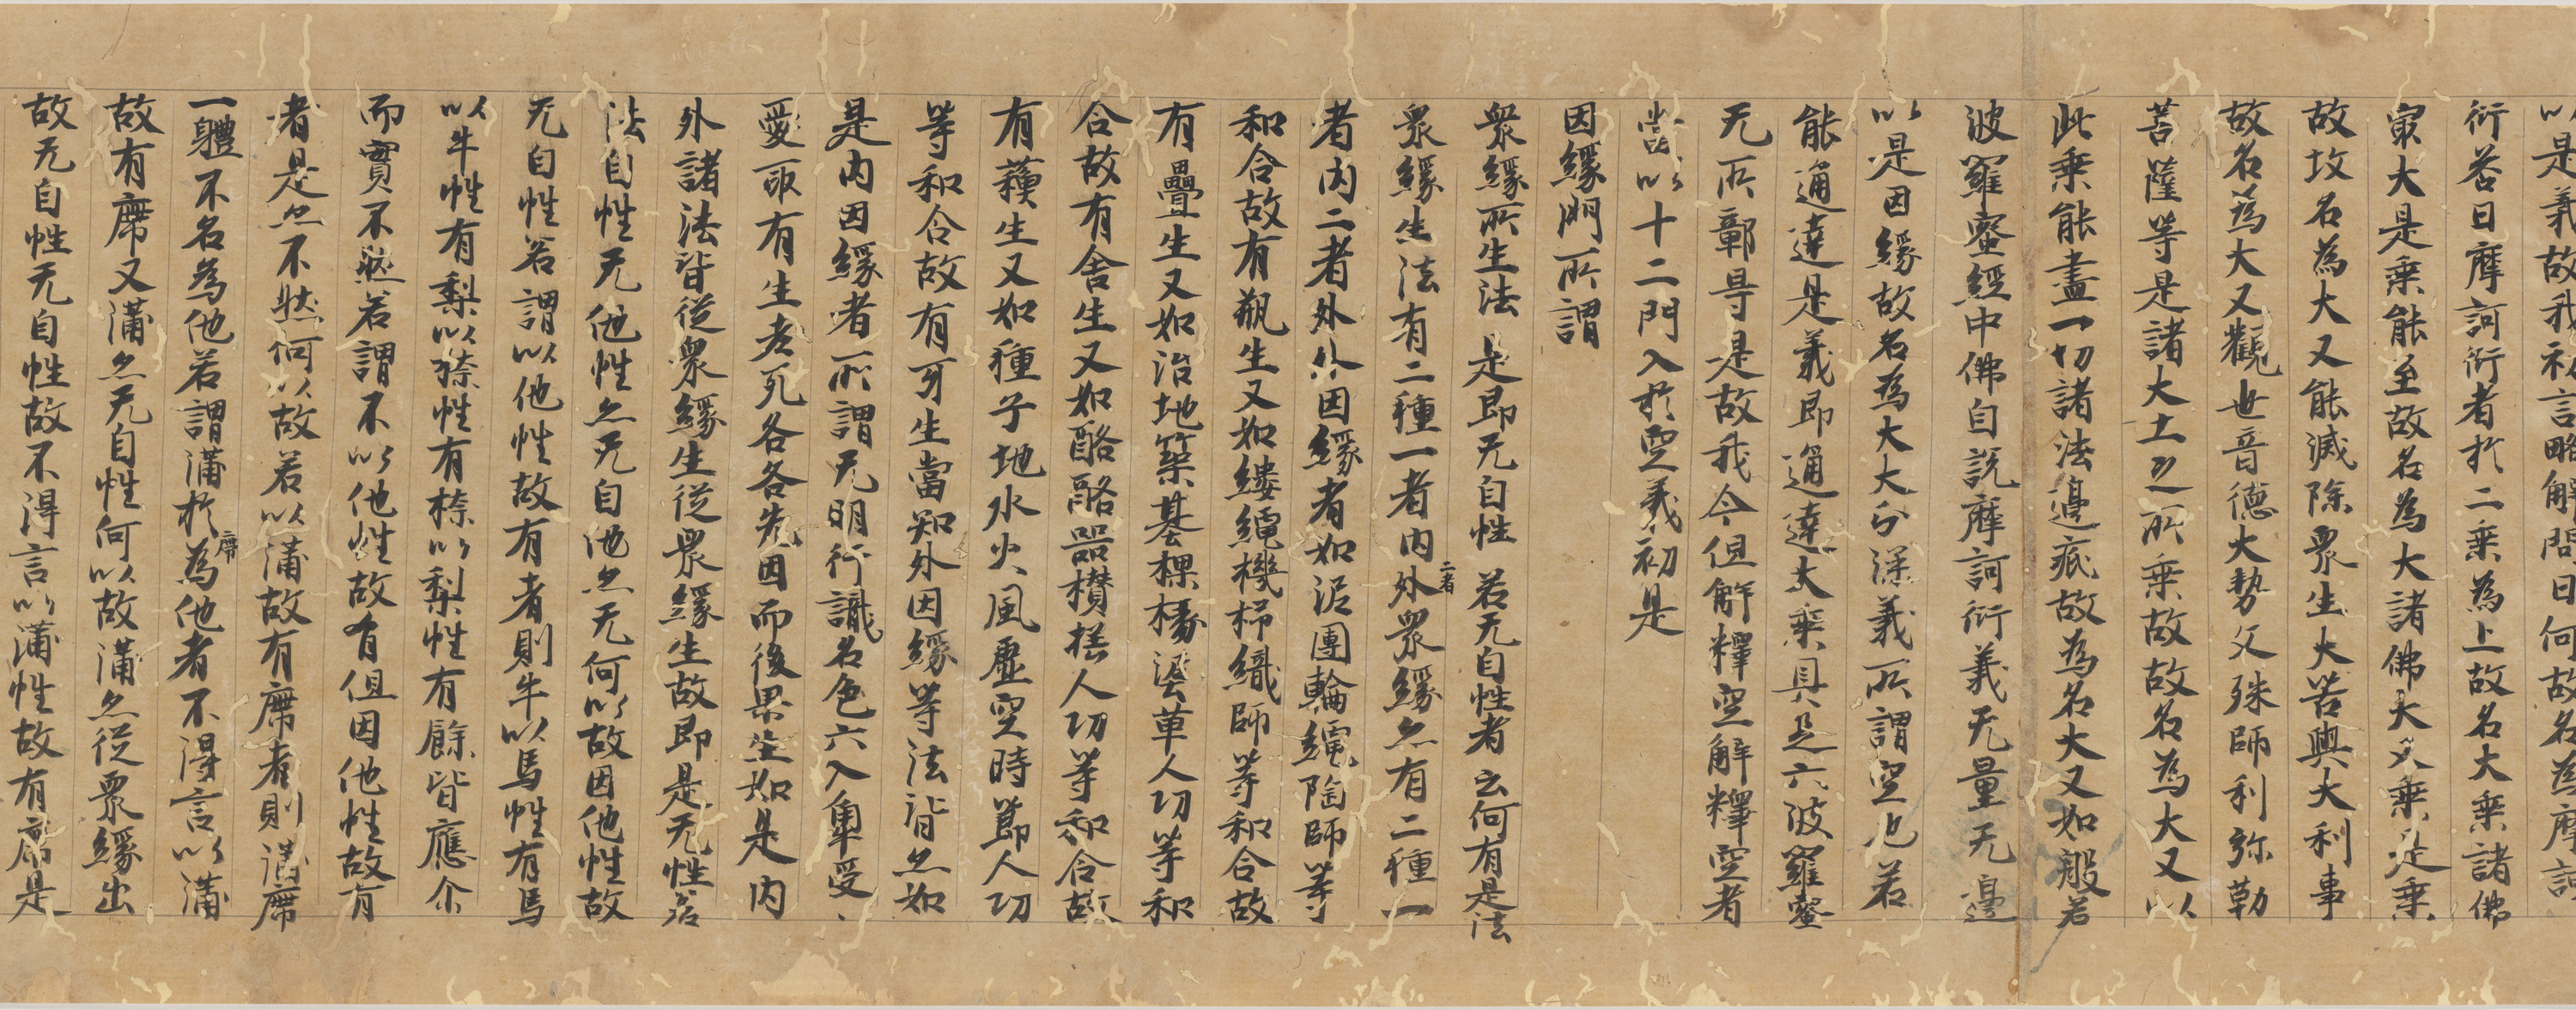 以是義故我初言略解問曰何故名為摩訶
衍荅曰摩訶衍者於二乘為上故名大乘諸佛
㝡大是乘能至故名為大諸佛大人乘是乘
故故名為大又能滅除眾生大苦與大利事
故名為大又觀世音德大勢文殊師利弥勒
菩薩等是諸大士之所乘故故名為大又以
此乘能盡一切諸法邊底故為名大又如般若
波羅蜜經中佛自說摩訶衍義无量无邊
以是因緣故名為大大分深義所謂空也若
能通達是義即通達大乘具足六波羅蜜
无所鄣㝵是故我今但解釋空解釋空者
當以十二門入於空義初是
因緣門所謂
眾緣所生法 是即无自性 若无自性者 云何有是法
眾緣生法有二種一者內二者外眾緣亦有二種一
者內二者外外因緣者如泥團輪繩陶師等
和合故有瓶生又如縷繩機杼織師等和合故
有疊生又如治地築基樑椽埿草人功等和
合故有舍生又如酪酪器攅揺人功等和合故
有蘓生又如種子地水火風虛空時節人功
等和合故有牙生當知外因緣等法皆亦如
是內因緣者所謂无明行識名色六入觸受、
愛取有生老死各各先因而後果生如是內
外諸法皆從眾緣生從眾緣生故即是无性若
法自性无他性亦无自他亦无何以故因他性故
无自性若謂以他性故有者則牛以馬性有馬
以牛性有梨以㮈性有㮈以梨性有餘皆應尒
而實不然若謂不以他性故有但因他性故有
者是亦不然何以故若以蒲故有席者則蒲席
一體不名為他若謂蒲於席為他者不得言以蒲
故有席又蒲亦无自性何以故蒲亦從眾緣出
故无自性无自性故不得言以蒲性故有席是